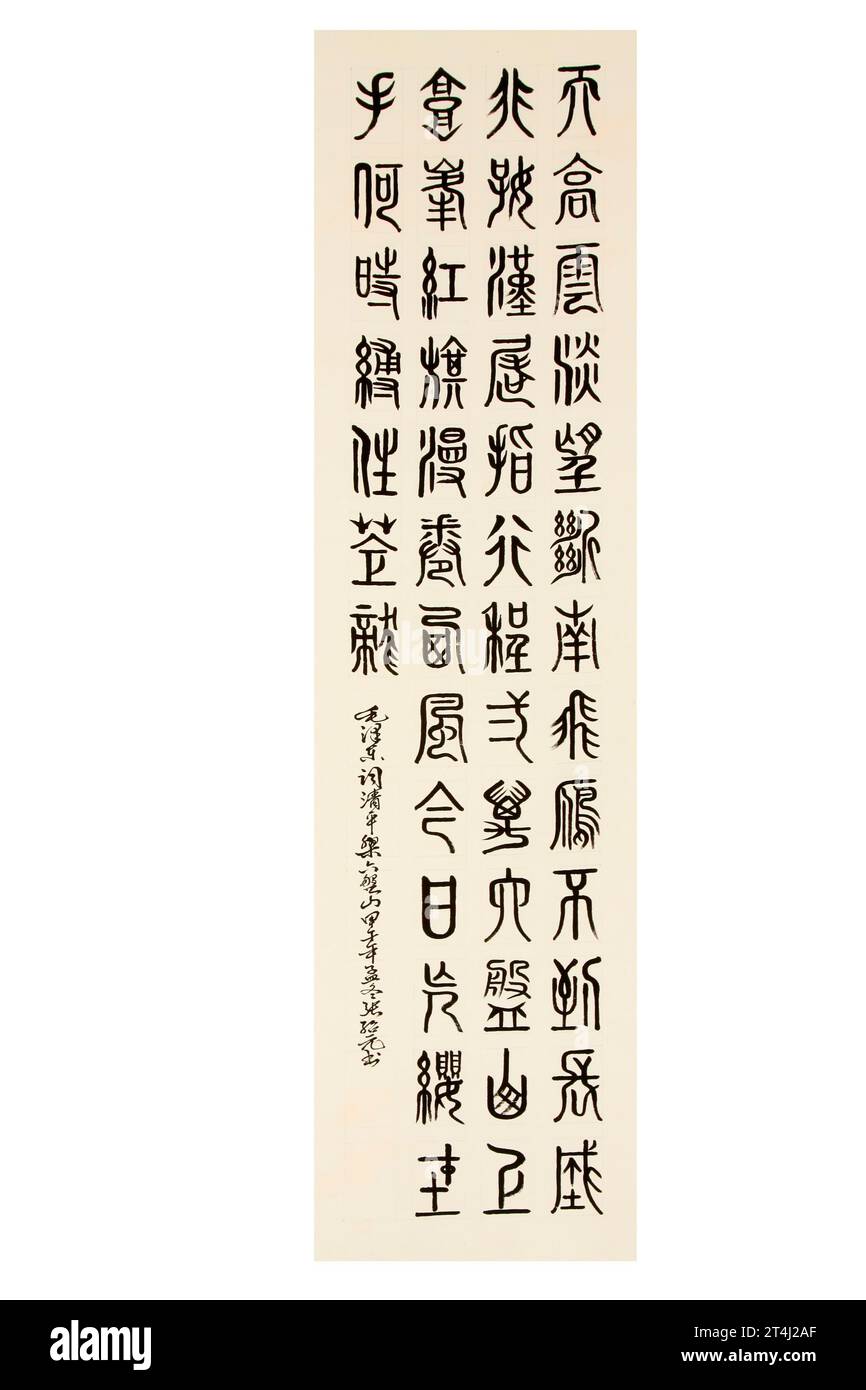 天高雲淡望斷南飛鴈不到長城
非好漢屈指行程弍萬六盤山上
高峯紅旗漫卷西風今日長纓在
手何時縛住蒼龍
毛泽东词清平樂六盤山甲午年孟冬張紹元书
alamy
a
a
a
a
a
alamy
Image ID: 2T4J2AF
www.alamy.com